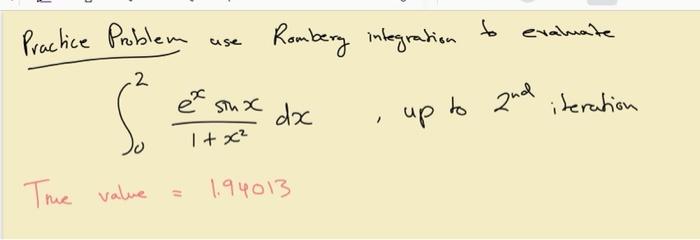 Practice Problem use Romberg integration to evaluate
∫₀² (eˣ sin x)/(1 + x²) dx , up to 2nd iteration
True value = 1.94013